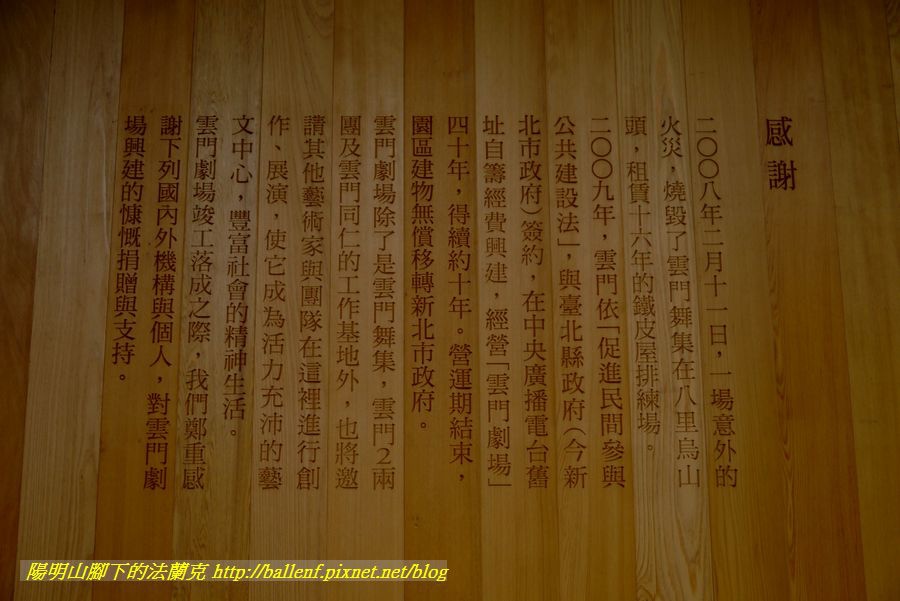 感謝
二〇〇八年二月十一日，一場意外的
火災，燒毀了雲門舞集在八里烏山
頭，租賃十六年的鐵皮屋排練場。
二〇〇九年，雲門依「促進民間參與
公共建設法」，與臺北縣政府（今新
北市政府）簽約，在中央廣播電台舊
址自籌經費興建，經營「雲門劇場」
四十年，得續約十年。營運期結束，
園區建物無償移轉新北市政府。
雲門劇場除了是雲門舞集，雲門2兩
團及雲門同仁的工作基地外，也將邀
請其他藝術家與團隊在這裡進行創
作、展演，使它成為活力充沛的藝
文中心，豐富社會的精神生活。
雲門劇場竣工落成之際，我們鄭重感
謝下列國內外機構與個人，對雲門劇
場興建的慷慨捐贈與支持。
陽明山腳下的法蘭克 http://ballenf.pixnet.net/blog